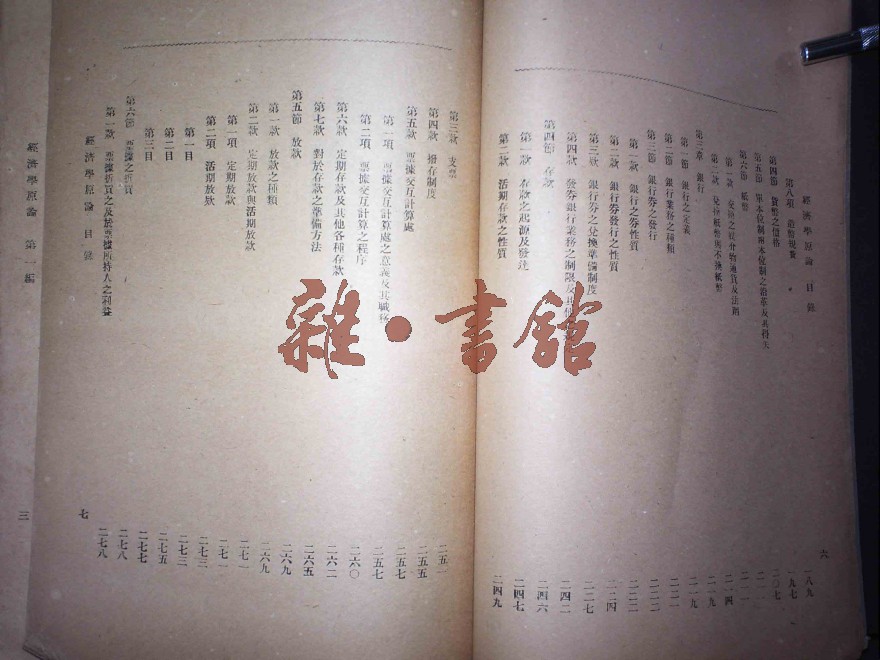 經濟學原論 目錄
六
第八項 造幣規費 一八九
第四節 貨幣之價格 一九七
第五節 單本位制兩本位制之沿革及其得失 二〇七
第六節 紙幣 二一一
第三章 銀行 二一九
第一節 銀行之定義 二一九
第二節 銀行業務之種類 二二一
第三節 銀行券之發行 二二二
第一款 銀行券之券性質 二二二
第二款 銀行券發行之性質 二二四
第三款 銀行券之兌換準備制度 二二七
第四款 發券銀行業務之制限及其他 二四二
第四節 存款 二四六
第一款 存款之起源及發達 二四七
第二款 活期存款之性質 二四九
第三款 支票 二五一
第四款 撥存制度 二五五
第五款 票據交互計算處 二五七
第一項 票據交互計算處之意義及其職務 二五七
第二項 票據交互計算之程序 二六〇
第六款 定期存款及其他各種存款 二六二
第七款 對於存款之準備方法 二六五
第五節 放款 二六九
第一款 放款之種類 二六九
第二款 定期放款與活期放款 二七一
第一項 定期放款 二七一
第二項 活期放款 二七三
第一目 二七三
第二目 二七五
第三目 二七七
第六節 票據之折買 二七八
第一款 票據折買之及於票據所持人之利益 二七八
經濟學原論 目錄
七
經濟學原論 第一編
三
雜·書館